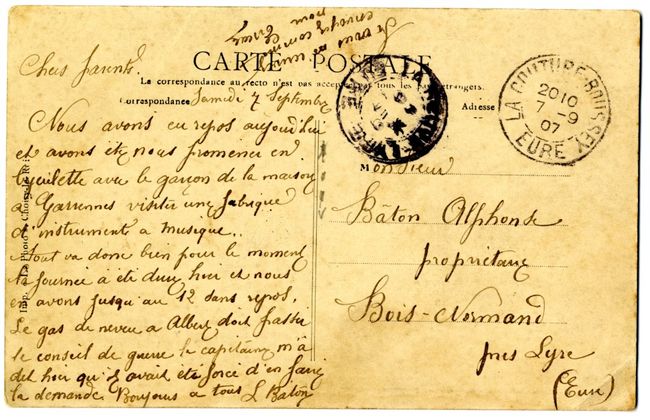 Je vous
envoyé comme
nous
CARTE POSTALE
La correspondance au recto n'est pas acceptée par tous les pays étrangers.
Correspondance
Adresse
Chers parents.
Samedi 7 Septembre
Nous avons eu repos aujourd'hui
et avons été nous promener en
bycielette avec le garçon de la maison
à Garennes visiter une fabrique
d'instrument à musique..
Tout va donc bien pour le moment
la journée a été dure hier et nous
en avons jusqu'au 12 sans repos.
Le gas de neveu a Albert doit passer
le conseil de guerre le capitaine m'a
dit hier qu'il avait été forcé d'en faire
la demande. Bonjours a tous L Bâton
LA COUTURE-BOUSSEY
2010
7 -9
07
EURE
Monsieur
Bâton Alphonse
propriétaire
Bois-Normand
près Lyre
(Eure)